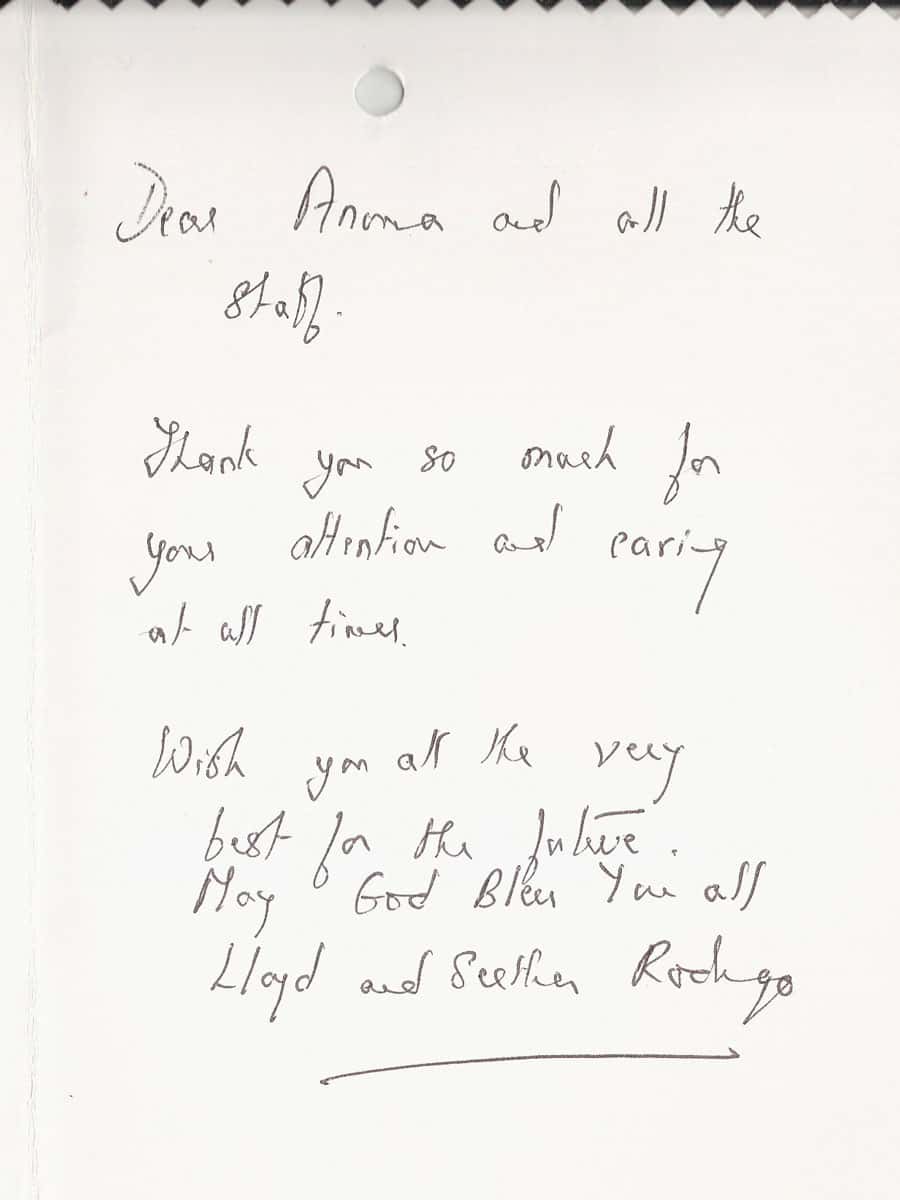 Dear Anoma and all the
staff.
Thank you so much for
your attention and caring
at all times.
Wish you all the very
best for the future.
May God Bless You all
Lloyd and Rodrigo